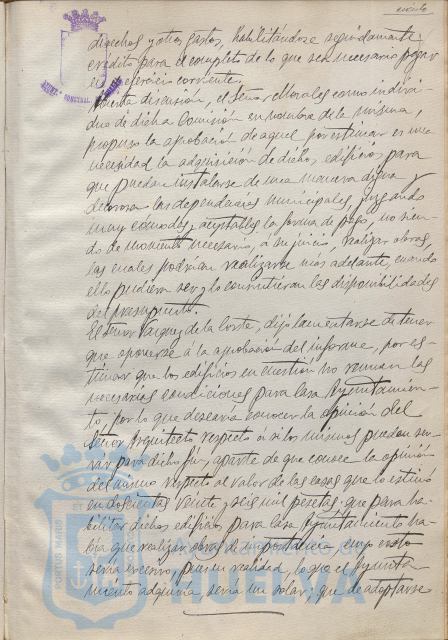 derechos y otros gastos, habilitándose seguidamente
credito para el completo de lo que sea necesario pagar
en el ejercicio corriente.
Abierta discusión, el Señor Morales como indivi-
duo de dicha Comisión en nombre de la misma,
propuso la aprobación de aquel por estimar es una
necesidad la adquisición de dichos edificios para
que puedan instalarse de una manera digna y
decorosa las dependencias municipales, juzgando
muy cómodos y aceptables la forma de pago, no sien-
do de momento necesario, a su juicio, realizar obras,
las cuales podrían realizarse mas adelante, cuando
ello pudiera ser y lo consintieran las disponibilidades
del presupuesto.
El Señor Vazquez de la Corte, dijo lamentarse de tener
que oponerse á la aprobación del informe, por es-
timar que los edificios en cuestión no reunen las
necesarias condiciones para Casa Ayuntamien-
to, por lo que desearía conocer la opinión del
Señor Arquitecto respecto a si los mismos pueden ser-
vir para dicho fin, aparte de que conoce la opinión
del mismo respecto al valor de las casas que lo estimó
en doscientas veinte y seis mil pesetas: que para ha-
bilitar dichos edificios para Casa Ayuntamiento ha-
bría que realizar obras de importancia, cuyo costo
sería excesivo, pues en realidad, lo que el Ayunta-
miento adquiría sería un solar; que de adoptarse
PORTUS MARIS
HUELVA